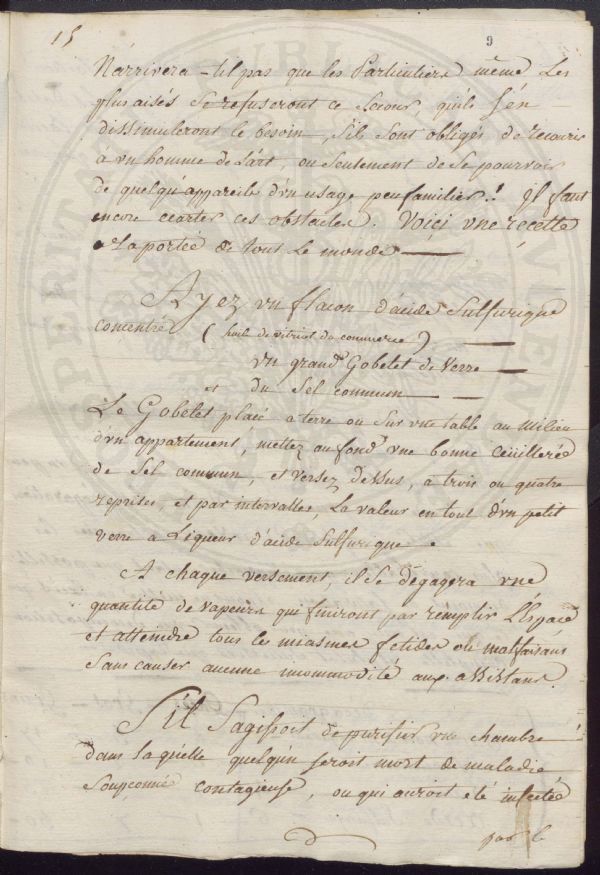 15
9
N'arrivera-t-il pas que les Particuliers même les
plus aisés se refuseront ce secour, qu'ils s'en
dissimuleront le besoin, s'ils sont obligés de recourir
à un homme de L'art, ou seulement de se pourvoir
de quelqu'appareils d'un usage peu familier? Il faut
encore ecarter ces obstacles. Voici une recette
a La portée de tout Le monde —
Ayez un flacon d'acide Sulfurique
concentré (huile de vitriol du commerce) —
un grand Gobelet de Verre —
et du Sel commun —
Le Gobelet placé a terre ou sur une table au milieu
d'un appartement, mettez au fond une bonne ceuillerée
de Sel commun, et versez dessus, à trois ou quatre
reprises, et par intervalles, La valeur en tout d'un petit
verre a Liqueur d'acide Sulfurique.
A chaque versement, il se dégagera une
quantité de vapeurs qui finiront par remplir L'Espace
et atteindre tous les miasmes fetides et malfaisans
sans causer aucune incommodité aux assistans.
S'il s'agissoit de purifier une chambre
dans laquelle quelqu'un seroit mort de maladie
soupçonnée contagieuse, ou qui auroit été infectée
par